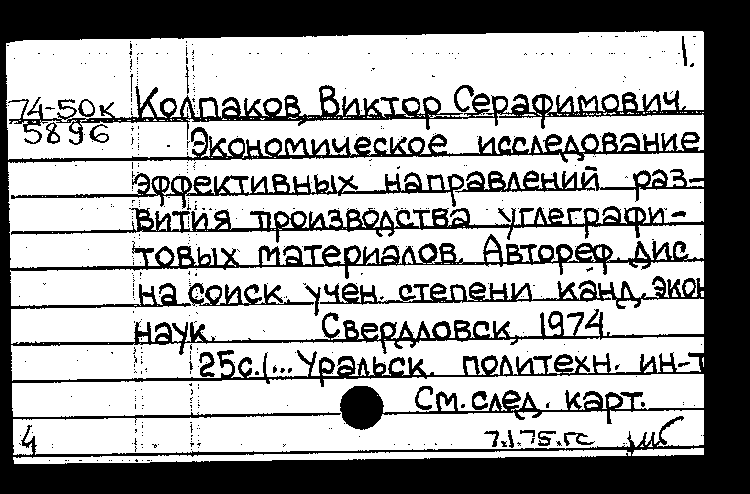 1.
74-50к Колпаков, Виктор Серафимович.
5896
Экономическое исследование
эффективных направлений раз-
вития производства углеграфи-
товых материалов. Автореф. дис.
на соиск. учен. степени канд. экон
наук. Свердловск, 1974.
25с.(... Уральск. политехн. ин-т
См. след. карт.
4 7.1.75.гс